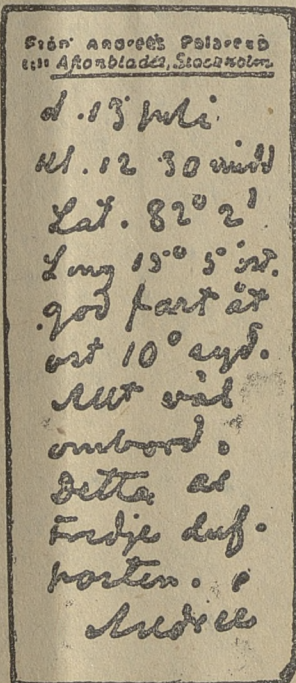 Från Andrées Polarexp
till Aftonbladet, Stockholm
d. 13 juli
kl. 12 30 midd
Lat. 82° 2'
Long 15° 5' ost.
god fart åt
ost 10° syd.
Allt väl
ombord.
Detta är
tredje duf-
posten.
Andrée